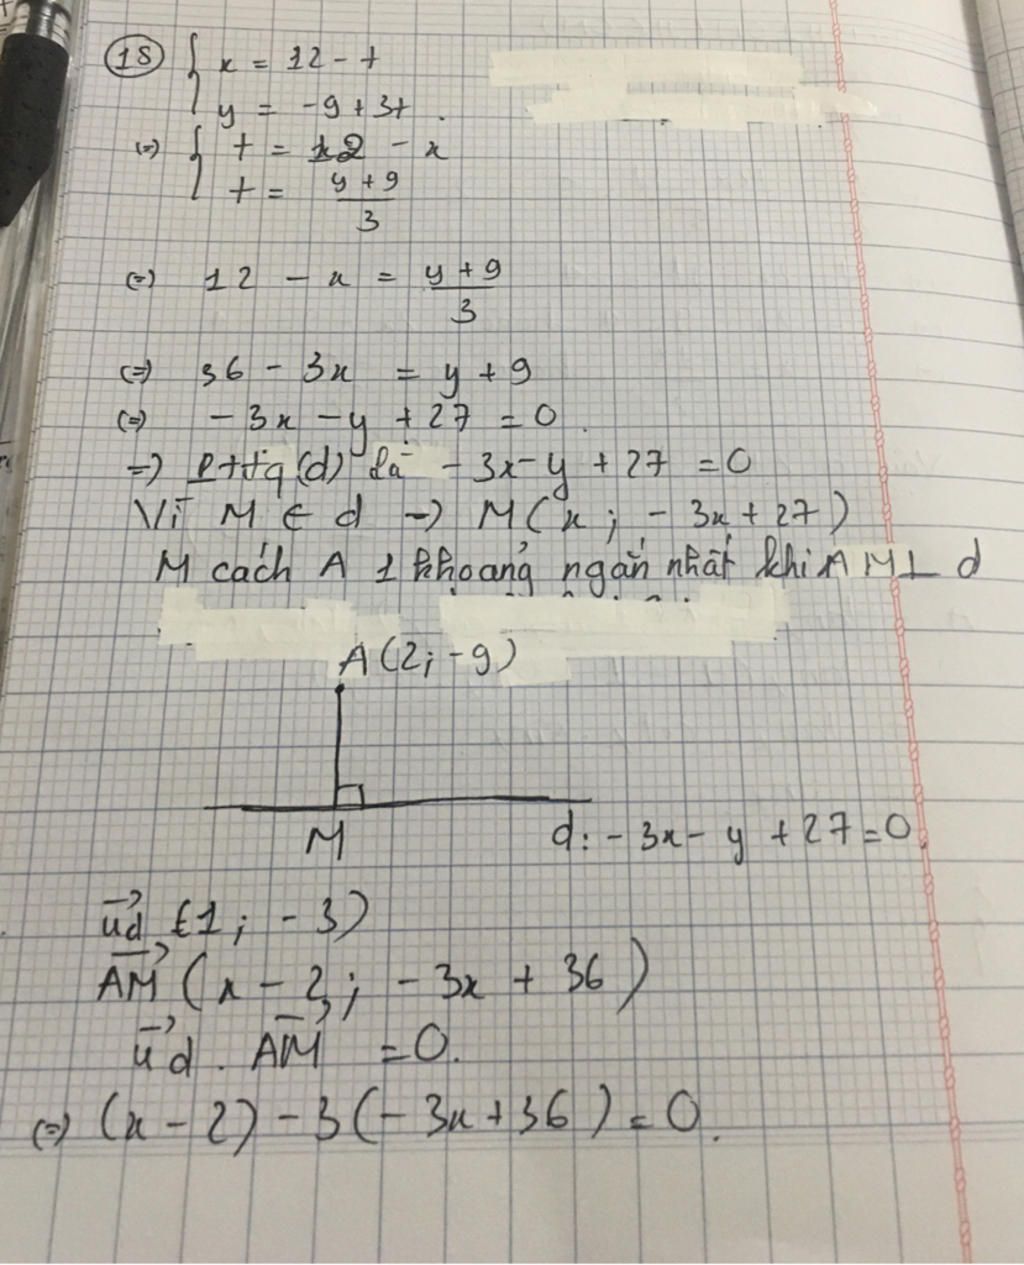 18 { x = 12 - t
y = -9 + 3t.
(=) { t = 12 - x
t = y + 9 / 3
(=) 12 - x = y + 9 / 3
(=) 36 - 3x = y + 9
(=) - 3x - y + 27 = 0.
=) pttq (d) là - 3x - y + 27 = 0
Vì M ∈ d -> M(x; - 3x + 27)
M cách A 1 khoảng ngắn nhất khi AM ⊥ d
A(2; -9)
M
d: - 3x - y + 27 = 0.
ud (1; - 3)
AM (x - 2; - 3x + 36)
ud . AM = 0.
(=) (x - 2) - 3(- 3x + 36) = 0.